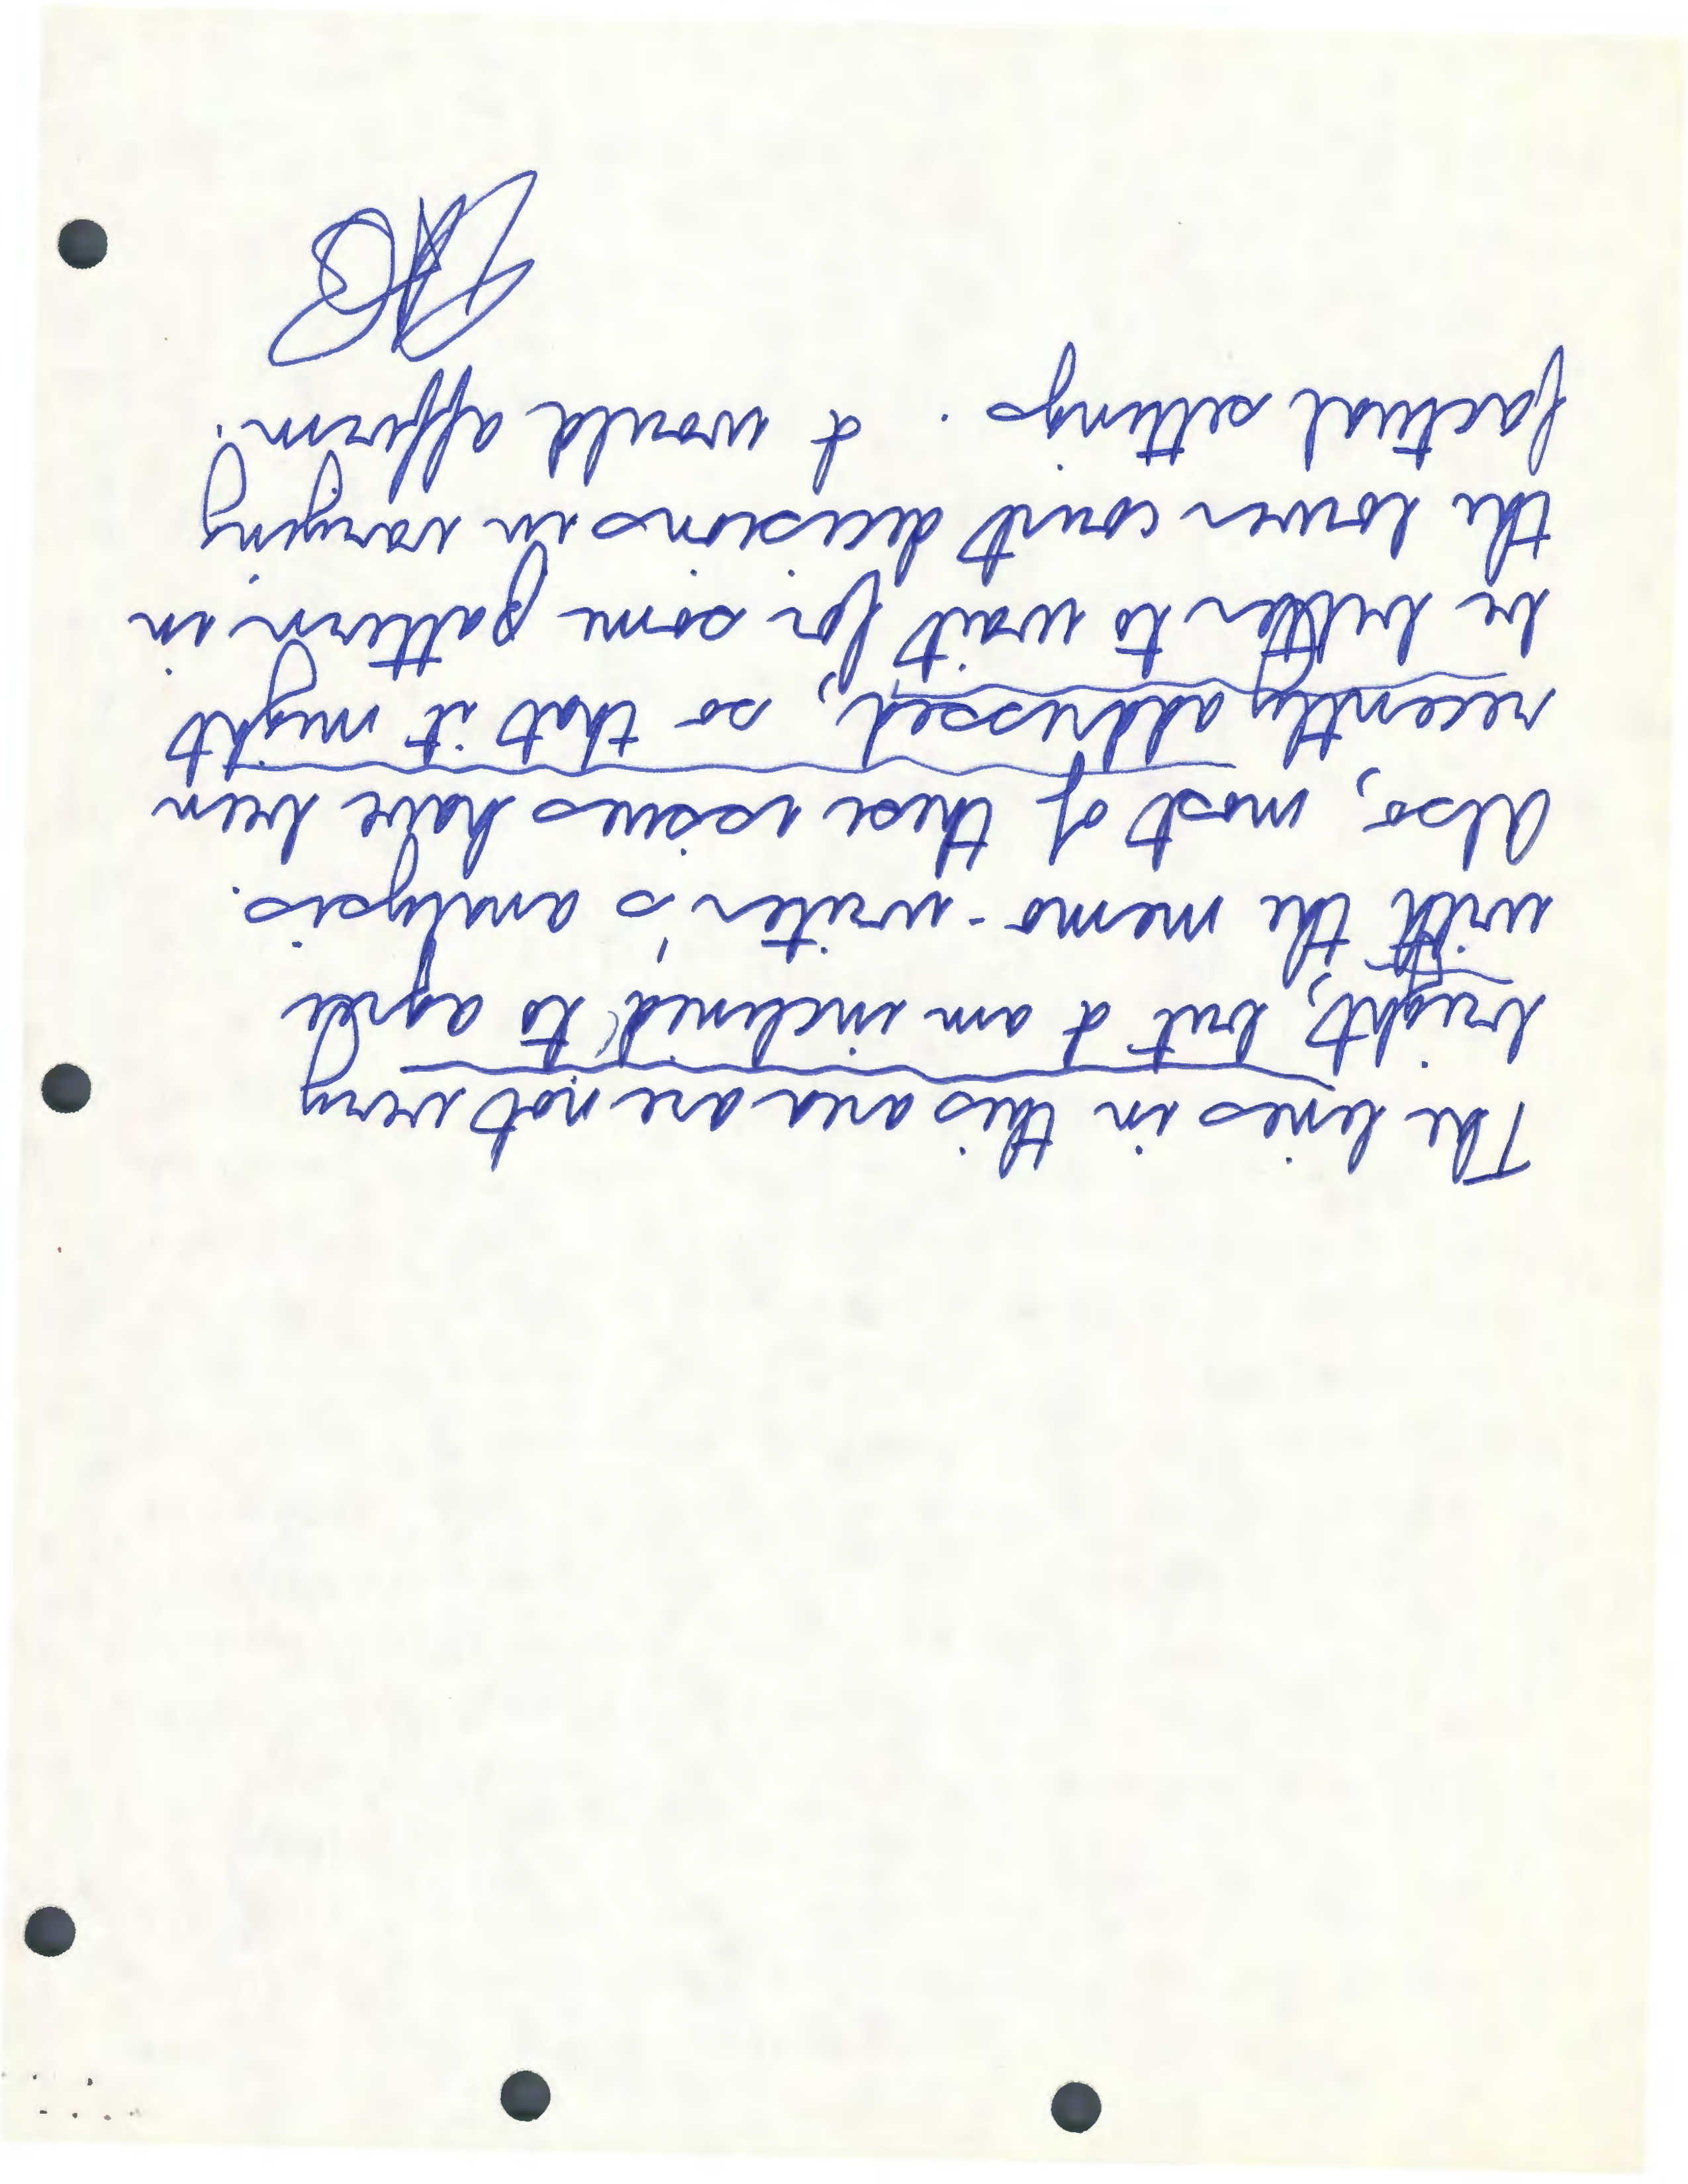 The lines in this area are not very
bright, but I am inclined to agree
with the memo-writer's analysis.
Also, most of these issues have been
recently addressed, so that it might
be better to wait for some pattern in
the lower court decisions in varying
factual settings. I would affirm.